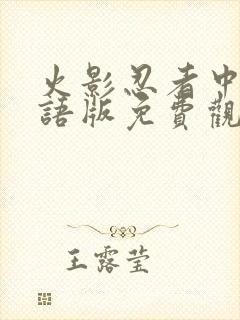 火影忍者中
語版免費觀
王露莹